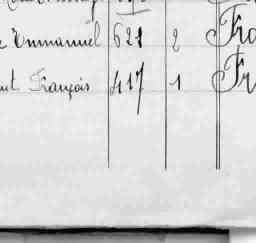 Emmanuel 621 2 Fra
François 417 1 Fr